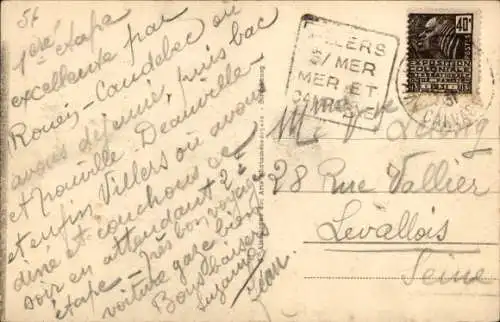 1ère étape
excellente par
Rouen - Caudebec où
avons déjeuné, puis bac
et Deauville
et enfin Villers où avons
diné et couchons ce
soir en attendant 2e
étape - Très bon voyage
voiture gaze bien
Bons baisers
Suzanne
Jean
VILLERS
S/MER
MER ET
CAMPAGNE
40c
POSTES
EXPOSITION
COLONIALE
INTERNATIONALE
PARIS 1931
CALVADOS
28 Rue Vallier
Levallois
Seine